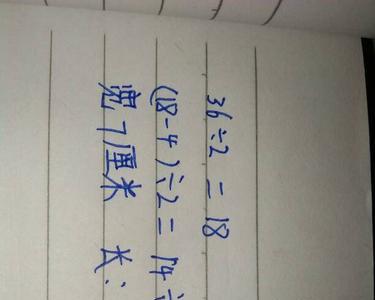 36÷2=18
(18-4)÷2=14÷
宽7厘米 长: